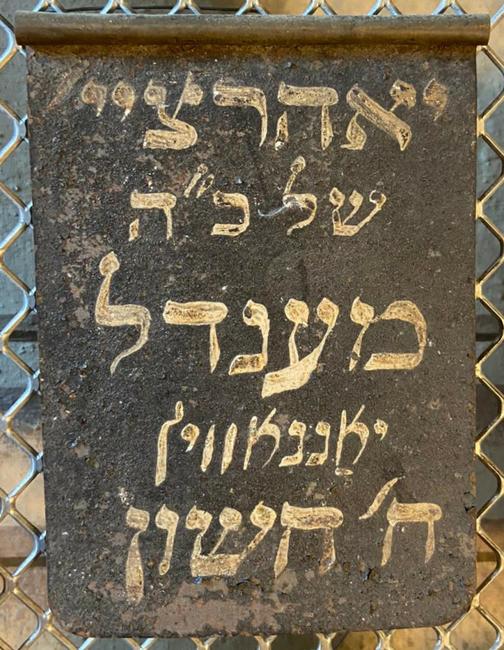 יאהרציי'
של כ"ה
מענדל
יאַננאוויץ
ח' חשון